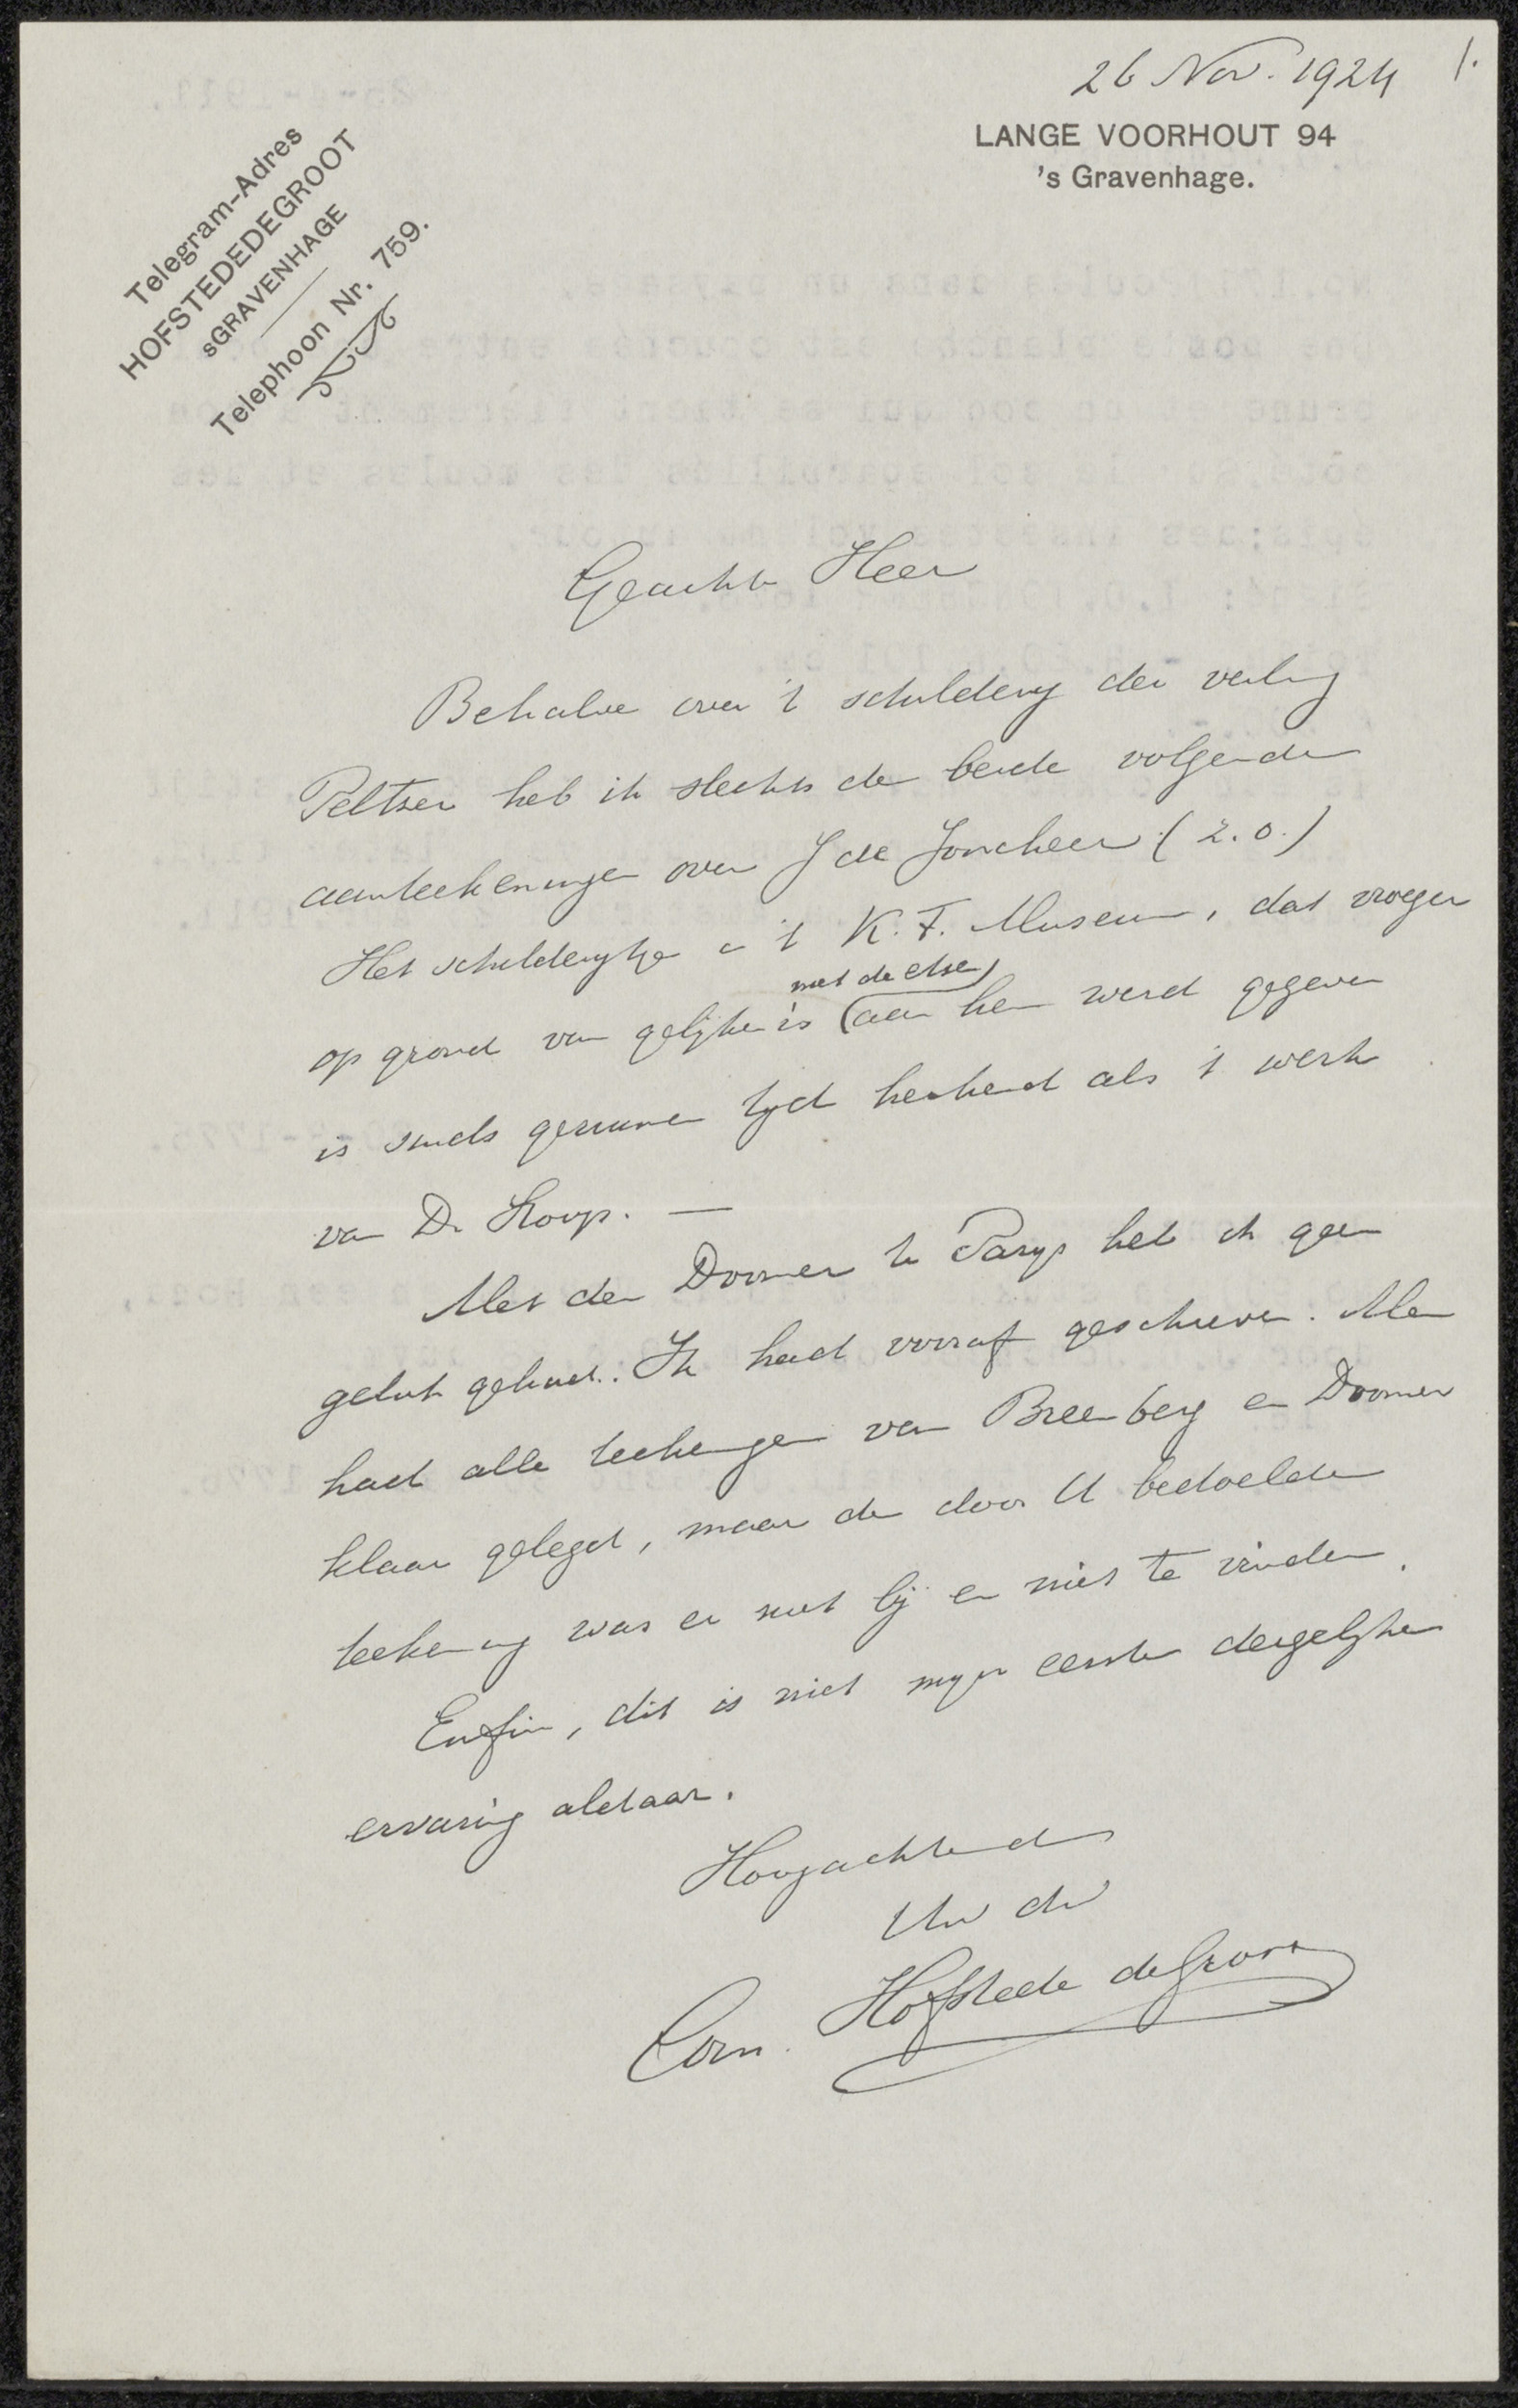 26 Nov. 1924
1.
LANGE VOORHOUT 94
's Gravenhage.
Telegram-Adres
HOFSTEDEDEGROOT
sGRAVENHAGE
Telephoon Nr. 759.
Geachte Heer
Behalve over 't schilderij der veiling
Peltzer heb ik slechts de beide volgende
aanteekeningen over J de Joncheer (z.o.)
Het schilderijtje in 't K.F. Museum, dat vroeger
met de etsen
op grond van gelijkenis aan hem werd gegeven
is sinds geruimen tijd herkend als 't werk
van D. Koup. —
Met den Doomer te Parijs heb ik geen
geluk gehad. Ik had vooraf geschreven. Men
had alle teekeningen van Breenberg en Doomer
klaar gelegd, maar de door U bedoelde
teekening was er niet bij en niet te vinden.
Enfin, dit is niet mijn eerste dergelijke
ervaring aldaar.
Hoogachtend
Uw dw
Corn. Hofstede de Groot